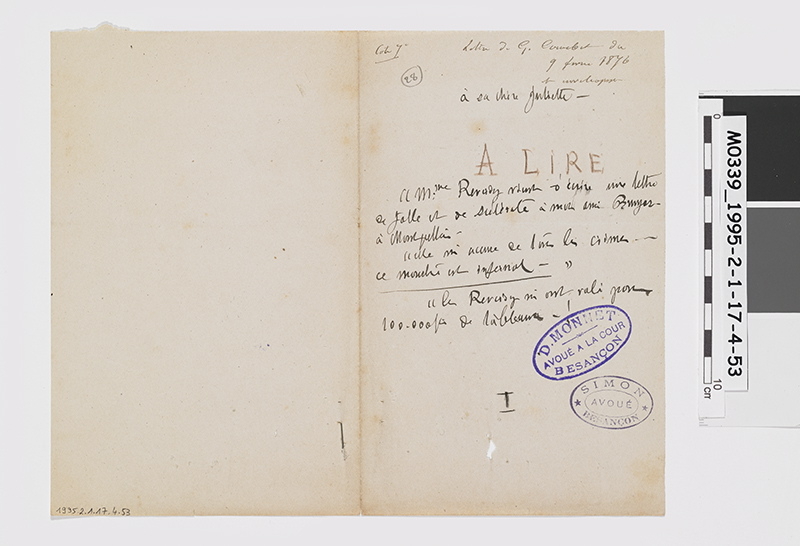 Cote 7e
Lettre de G. Courbet du
9 février 1876
28
à sa chère Juliette —
A LIRE
"Mme Reverdy vient d'écrire une lettre
de folle et de scélérate à mon ami Bruyas
à Montpellier —
"elle m'accuse de tous les crimes —
ce monde est infernal — "
"les Reverdy m'ont volé pour
100.000 f de tableaux — !
D. MONNET
AVOUÉ A LA COUR
BESANÇON
SIMON
AVOUÉ
BESANÇON
I
1995.2.1.17.4.53
M0339_1995-2-1-17-4-53
0
10
cm